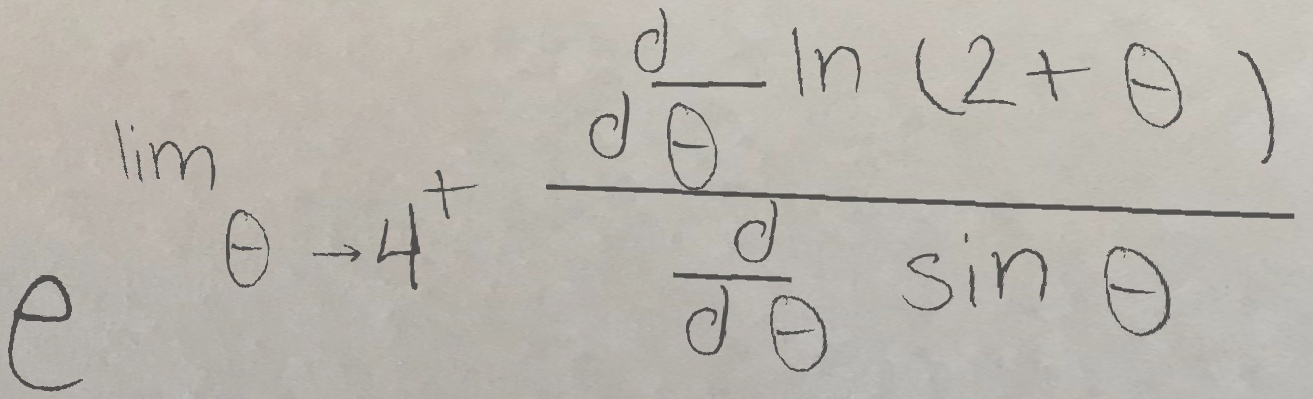 e^{\lim_{\theta \to 4^+} \frac{\frac{d}{d\theta} \ln(2+\theta)}{\frac{d}{d\theta} \sin \theta}}